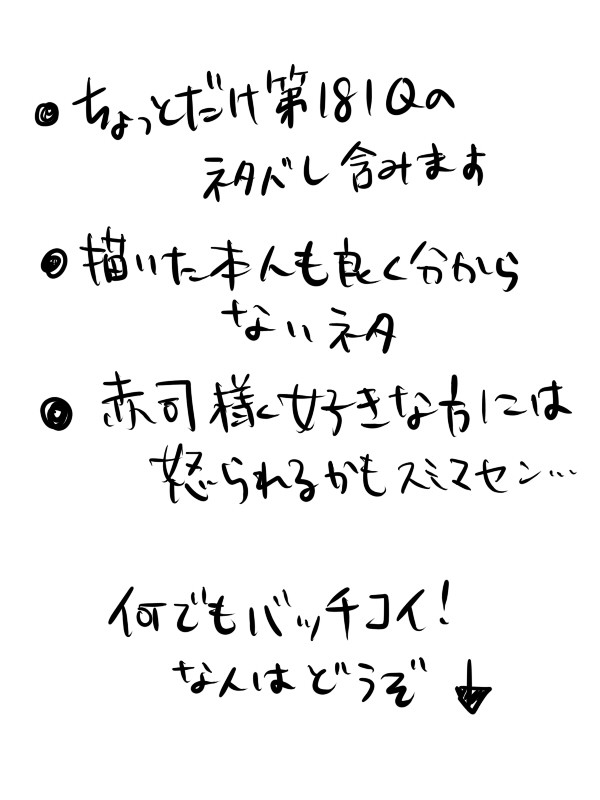 ● ちょっとだけ第181Qの
ネタバレ含みます
● 描いた本人も良く分から
ないネタ
● 赤司様好きな方には
怒られるかもスミマセン…
何でもバッチコイ!
な人はどうぞ ↓